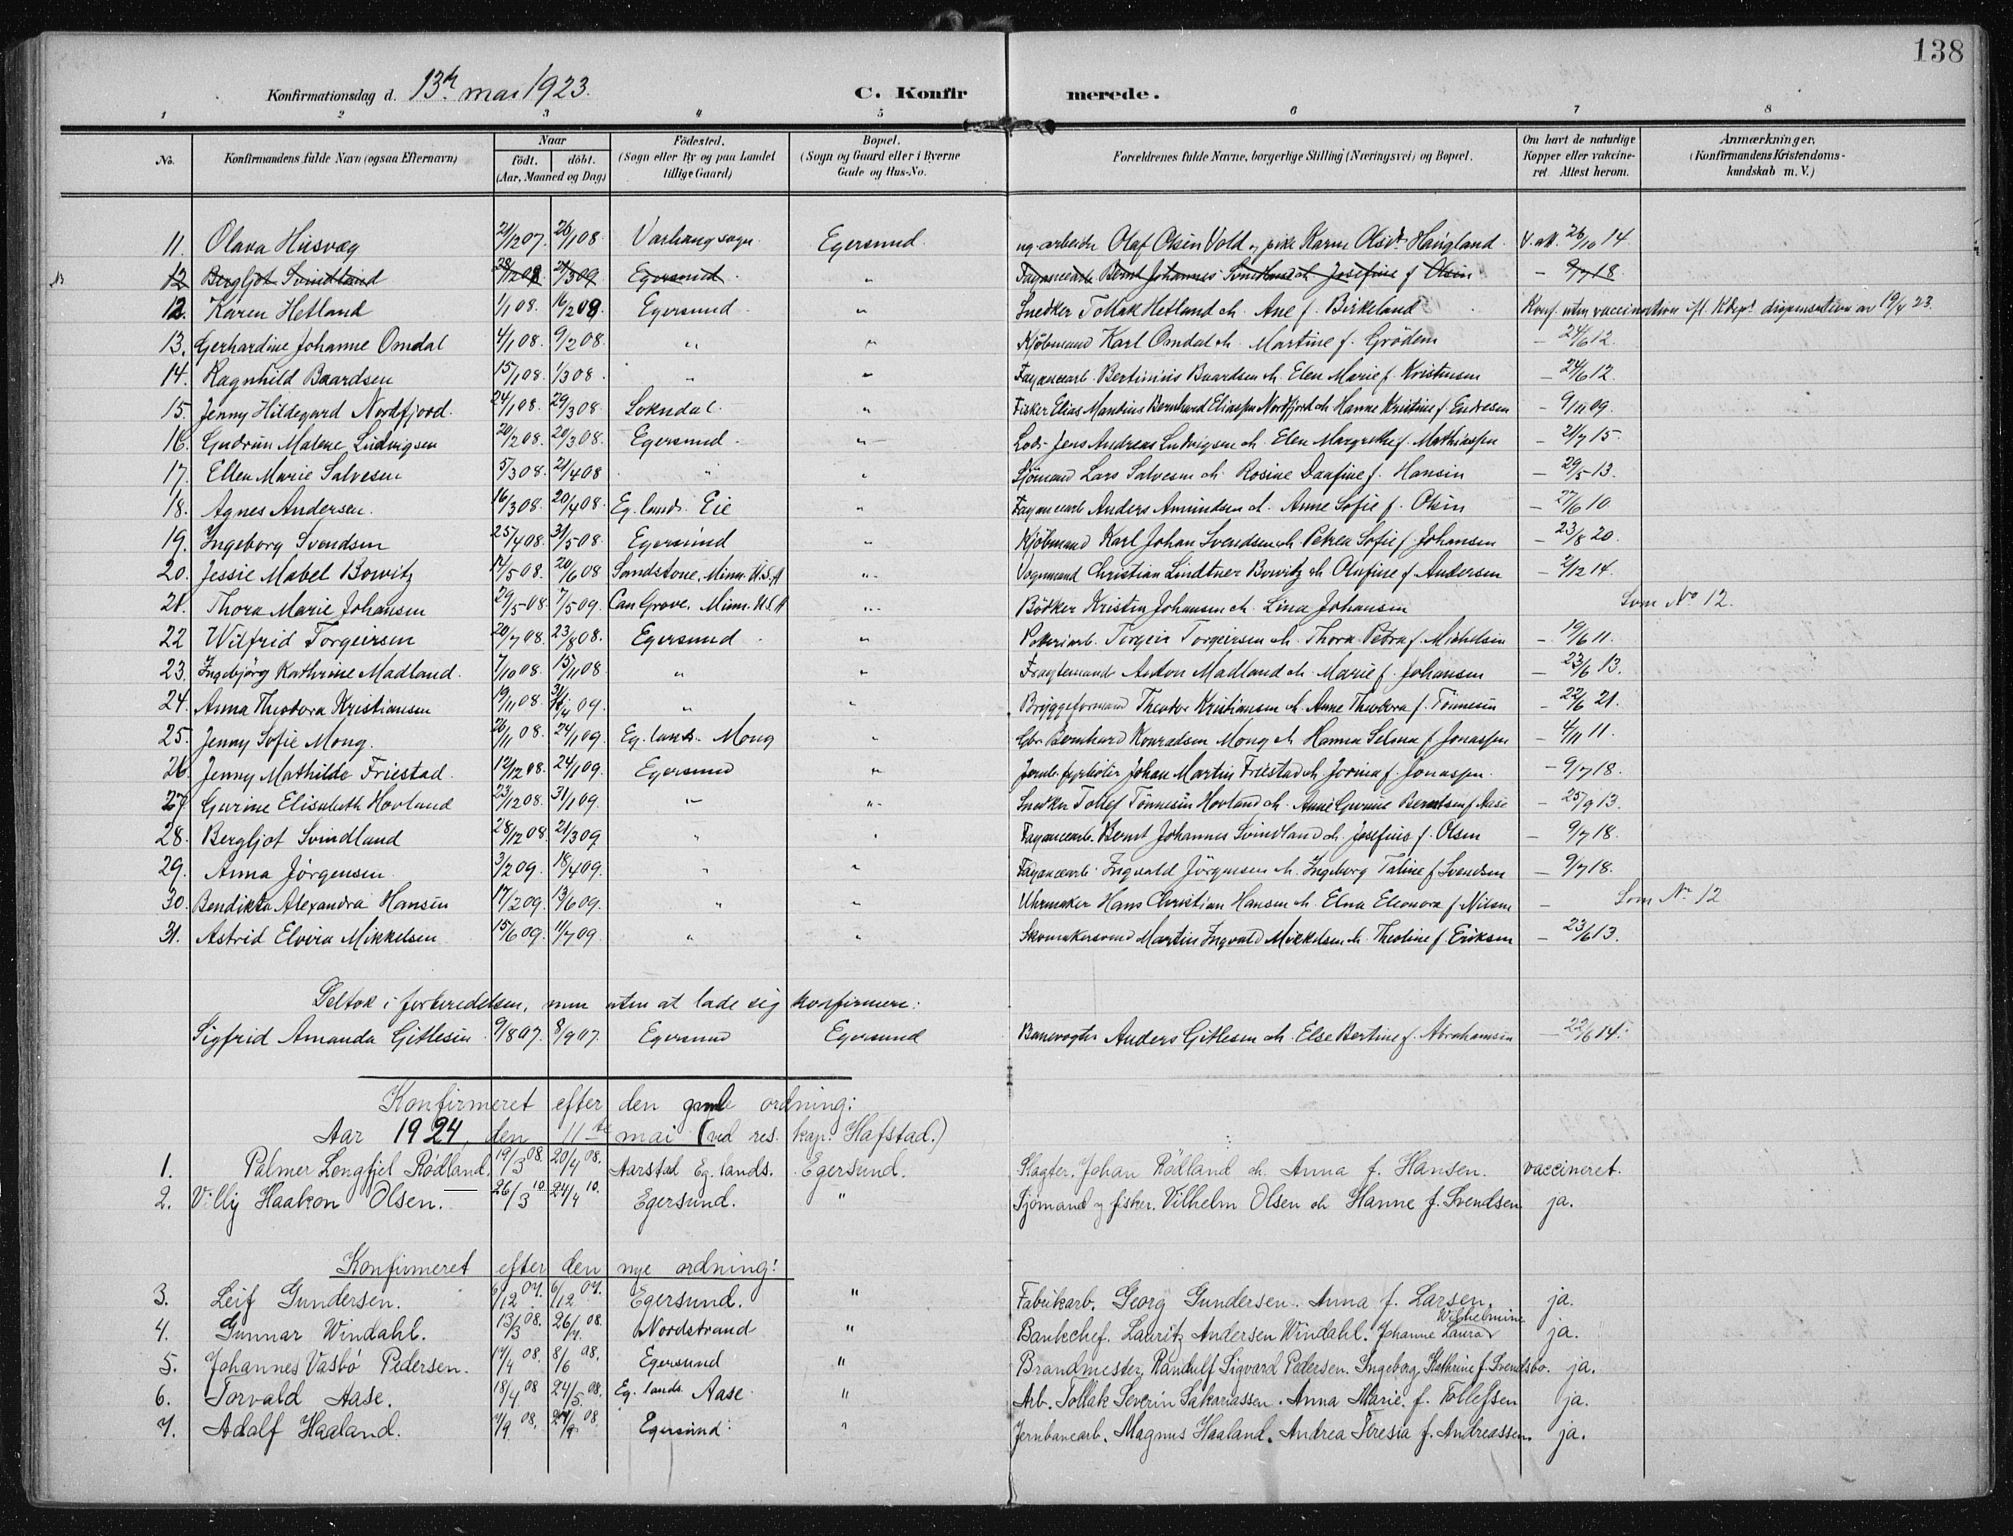 138
Konfirmationsdag d. 13de mai 1923. C. Konfirmerede.
1 2 3 4 5 6 7 8
No. Konfirmandens fulde Navn (ogsaa Efternavn) Naar födt. döbt. (Aar, Maaned og Dag) Födested. (Sogn eller By og paa Landet tillige Gaard) Bopæl. (Sogn og Gaard eller i Byerne Gade og Hus-No. Forældrenes fulde Navne, borgerlige Stilling (Næringsvei) og Bopæl. Om havt de naturlige Kopper eller vakcineret. Attest herom. Anmærkninger. (Konfirmandens Kristendomskundskab m. V.)
11. Olava Husvæg 21/12 07. 26/1 08. Varhaug sogn. Egersund. ug. arbeider Olaf Olsen Vold og pike Karen Haugland. V. att. 26/10 14.
12 Bergljot Svindland 28/12 08 21/3 09 Egersund. " Fayancearb. Bernt Johannes Svindland ok Josefine f. Olsen – 9/7 18.
12. Karen Hetland 1/1 08. 16/2 08 Egersund. " Snedker Tollak Hetland ok. Ane f. Birkeland Konf. uten vaccination ifl. Kdep. dispensation av 19/4 23.
13. Gerhardine Johanne Omdal 4/1 08. 9/2 08. " " Kjöbmand Karl Omdal ok. Martine f. Grödem – 24/6 12.
14. Ragnhild Baardsen 15/1 08. 1/3 08. " " Fayancearb. Bertinius Baardsen ok. Elen Marie f. Kristensen – 24/6 12.
15. Jenny Hildegard Nordfjord. 24/1 08. 29/3 08. Sokndal. " Fisker Elias Mandius Bernhard Eliassen Nordfjord ok Hanne Kristine f. Endresen – 9/11 09.
16. Gudrun Malene Ludvigsen 20/2 08. 20/3 08. Egersund. " Lods Jens Andreas Ludvigsen ok. Elen Margrethe f. Mathiassen – 21/7 15.
17. Ellen Marie Salvesen 5/3 08. 21/4 08 " " Sjömand Lars Salvesen ok. Rosine Danfine f. Hansen – 29/5 13.
18. Agnes Andersen. 16/3 08. 20/4 08. Eg. lands. Eie " Fayancearb Anders Amundsen ok. Anne Sofie f. Olsen – 27/6 10.
19. Ingeborg Svendsen 25/4 08. 31/5 08. Egersund " Kjöbmand Karl Johan Svendsen ok Petrea Sofie f. Johansen – 23/8 20.
20. Jessie Mabel Bowitz 14/5 08. 20/6 08 Sandstone, Minn. U.S.A " Vognmand Christian Lindtner Bowitz ok Olufine f Andersen – 2/12 14.
21. Thora Marie Johansen 29/5 08. 7/5 09. Can Grove, Minn. U.S.A " Bödker Kristen Johansen ok. Lina Johansen Som No 12.
22 Wilfrid Torgeirsen 20/7 08. 23/8 08. Egersund " Potteriarb. Torgeir Torgeirsen ok. Thora Petra f. Mikkelsen – 19/6 11.
23. Ingebjörg Kathrine Madland. 7/10 08. 15/11 08 " " Fragtemand Anton Madland ok. Marie f. Johansen – 23/6 13.
24. Anna Theodora Kristiansen 19/11 08. 09. " " Bryggeformand Theodor Kristiansen ok. Anne Theodora f. Tönnesen – 22/6 21.
25. Jenny Sofie Mong. 20/11 08. 24/1 09. Eg. lands. Mong " Gbr. Bernhard Konradsen Mong ok Hanna Selma f. Jonassen – 4/11 11.
26. Jenny Mathilde Friestad. 12/12 08. 24/1 09. Egersund " Jernb. fyrböter Johan Martin Friestad ok. Jorina f. Jonassen. – 9/7 18.
27. Gurine Elisabeth Hovland 23/12 08. 31/1 09. " " Snedker Tollef Tönnesen Hovland ok. Anne Gurine Berntsen f. Aase – 25/9 13.
28. Bergljot Svindland 28/12 08. 21/3 09 " " Fayancearb. Bernt Johannes Svindland ok. Josefine f. Olsen – 9/7 18.
29. Anna Jörgensen. 3/2 09. 18/4 09. " " Fayancearb. Ingvald Jörgensen ok. Ingeborg Taline f Svendsen – 9/7 18.
30. Bendikta Alexandra Hansen 17/2 09. 13/6 09. " " Uhrmaker Hans Christian Hansen ok. Elna Eleonora f. Nilsen – Som No 12
31. Astrid Elvira Mikkelsen 15/6 09. 11/7 09 " " Skomakersvend Martin Ingvald Mikkelsen ok. Theoline f. Eriksen – 23/6 13.
Deltok i forberedelsen, men uten at lade sig konfirmere:
Sigfrid Amanda Gitlesen 9/8 07. 8/9 07. Egersund Egersund Banevogter Anders Gitlesen ok. Else Bertine f. Abrahamsen – 22/6 14.
Konfirmeret efter den gamle ordning:
Aar 1924, den 11te mai (ved res. kap. Hafstad.)
1. Palmer Longfjel Rødland. 19/3 08. 20/4 08. Aarstad Eg. lands. Egersund. Slagter. Johan Rødland ok. Anna f. Hansen. vaccineret.
2. Villy Haakon Olsen. 26/3 10. 24/4 10. Egersund. " Sjømand og fisker. Vilhelm Olsen ok Hanne f. Svendsen ja.
Konfirmeret efter den nye ordning:
3. Leif Gundersen. 6/12 07. 6/12 07. Egersund. " Fabrikarb. Georg Gundersen. Anna f. Larsen. ja.
4. Gunnar Windahl. 13/3 08. 26/7 08. Nordstrand " Bankchef. Lauritz Andersen Windahl. Johanne Laura Wilhelmine ja.
5. Johannes Vasbø Pedersen. 14/4 08. 8/6 08. Egersund " Brandmester Randulf Sigvard Pedersen. Ingeborg Kathrine f. Svendsbo. ja.
6. Torvald Aase. 18/4 08 24/5 08. Eg. lands. Aase. " Arb. Tollak Severin Sakariassen. Anna Marie. f. Tollefsen ja.
7. Adolf Haaland. 7/9 08. 27/9 08. Egersund. " Jernbanearb. Magnus Haaland. Andrea Teresia f. Andreassen. ja.